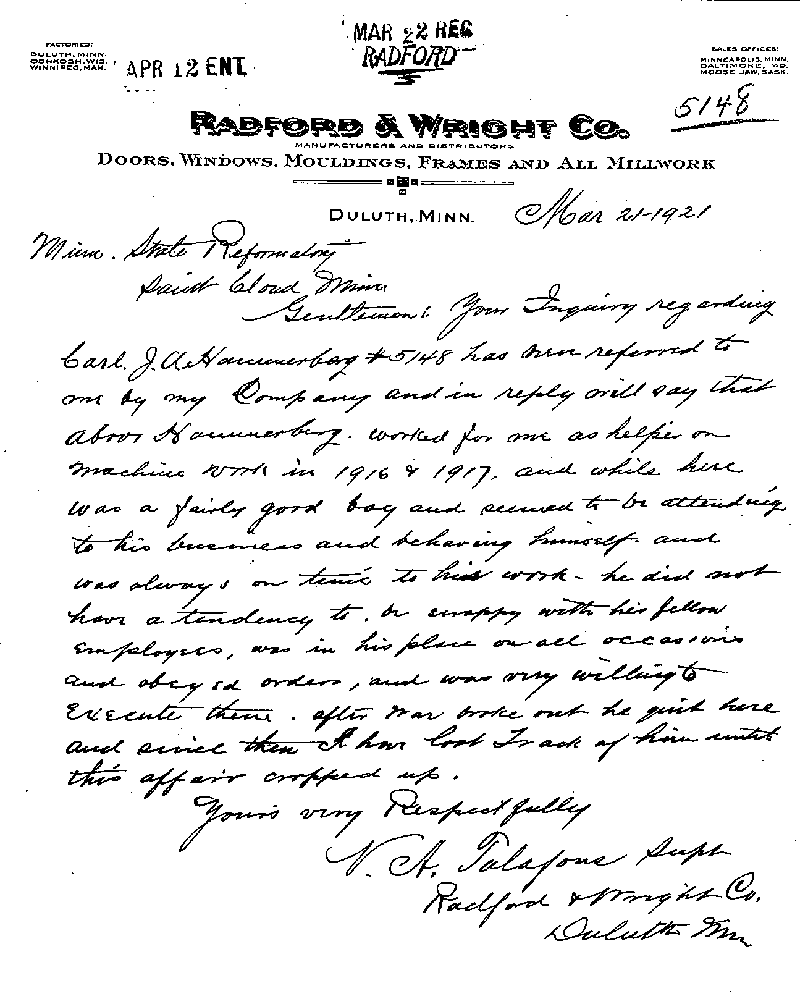 MAR 22 REC
RADFORD
FACTORIES:
DULUTH, MINN.
OSHKOSH, WIS.
WINNIPEG, MAN.
APR 12 ENT.
SALES OFFICES:
MINNEAPOLIS, MINN.
BALTIMORE, MD.
MOOSE JAW, SASK.
5148
RADFORD & WRIGHT CO.
MANUFACTURERS AND DISTRIBUTORS
DOORS, WINDOWS, MOULDINGS, FRAMES AND ALL MILLWORK
DULUTH, MINN. Mar 21-1921
Minn. State Reformatory
Saint Cloud Minn
Gentlemen: Your Inquiry regarding
Carl. J. A. Hammerberg #5148 has been referred to
me by my Company and in reply will say that
above Hammerberg. worked for me as helper on
machine work in 1916 & 1917. and while here
was a fairly good boy and seemed to be attending
to his business and behaving himself and
was always on time to his work - he did not
have a tendency to. be scrappy with his fellow
employees, was in his place on all occasions
and obeyed orders, and was very willing to
execute them. after war broke out he quit here
and since then I have lost Track of him until
this affair cropped up.
Yours very Respectfully
N. A. Talafous Supt
Radford & Wright Co.
Duluth Mn